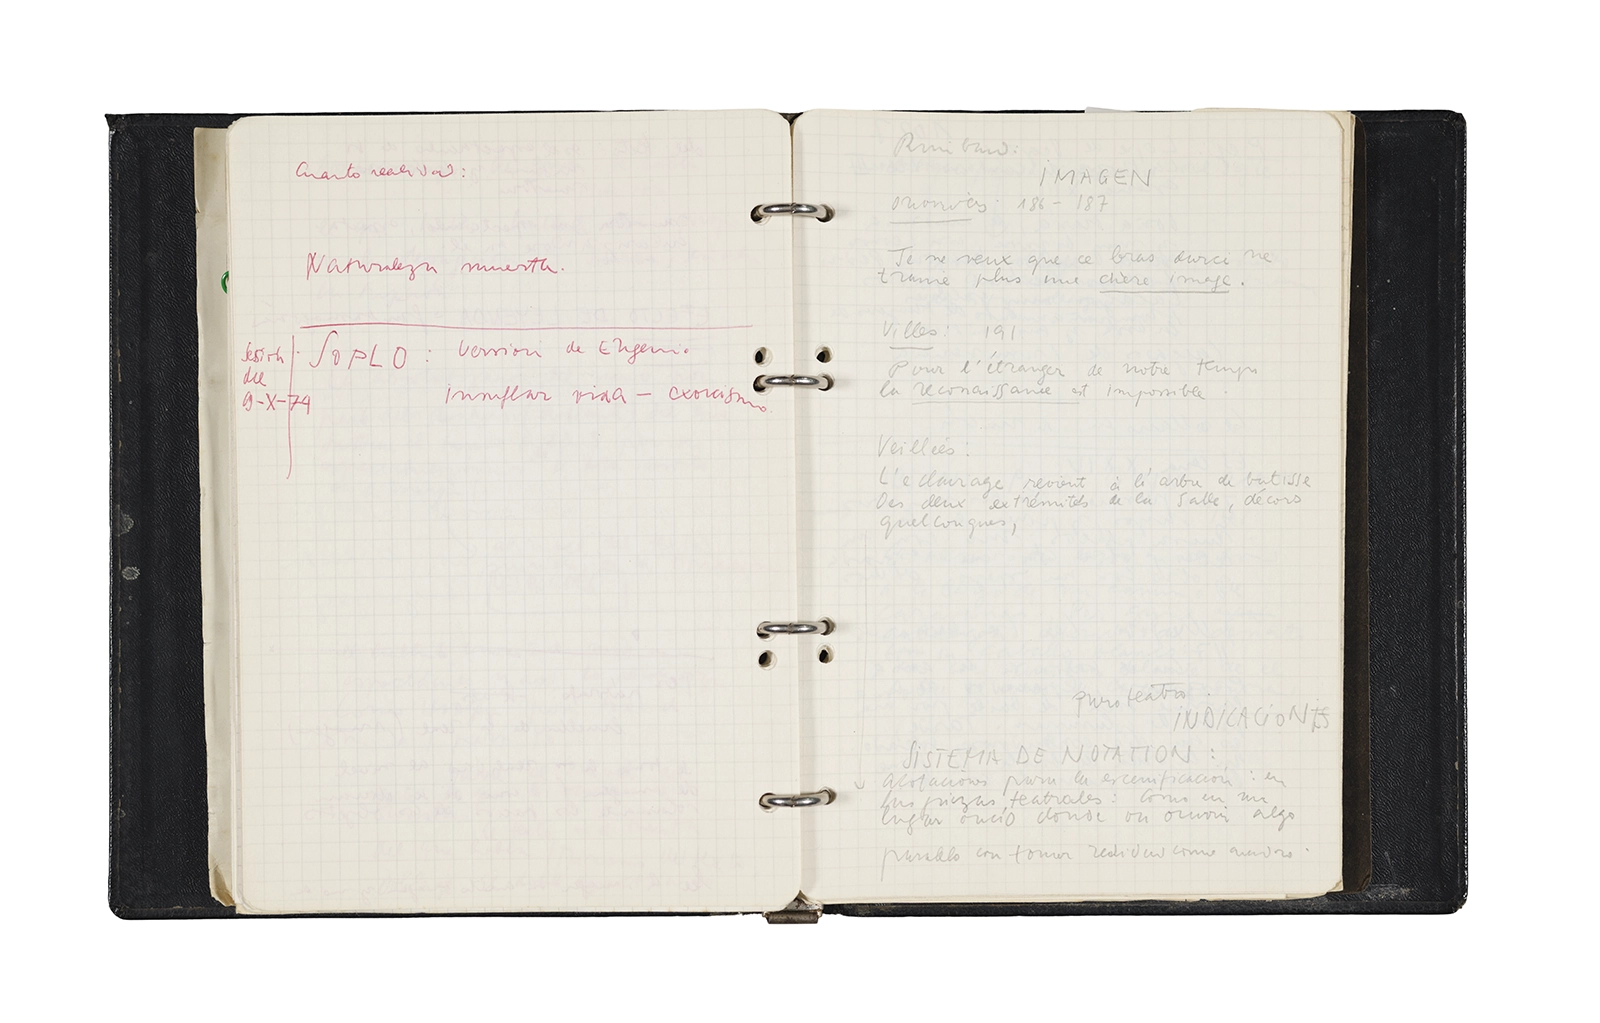 Cuarto realidad:
Naturaleza muerta.
Sesión
del
9-X-74
SOPLO: Version de Eugenio
insuflar vida — exorcismo.
Rimbaud:
IMAGEN
186 - 187
Je ne veux que ce bras durci ne
traine plus une chère image.
Villes: 191
Pour l'étranger de notre temps
la reconaissance est impossible.
Veillées:
L'eclairage revient à l'arbre de batisse
Des deux extrémités de la Salle, décors
quelconques,
puro teatro.
INDICACIONES
SISTEMA DE NOTATION:
Acotaciones para la escenificación: en
las piezas teatrales: como en un
lugar donde va algo
paralelo con tomar realidad como cuadro.